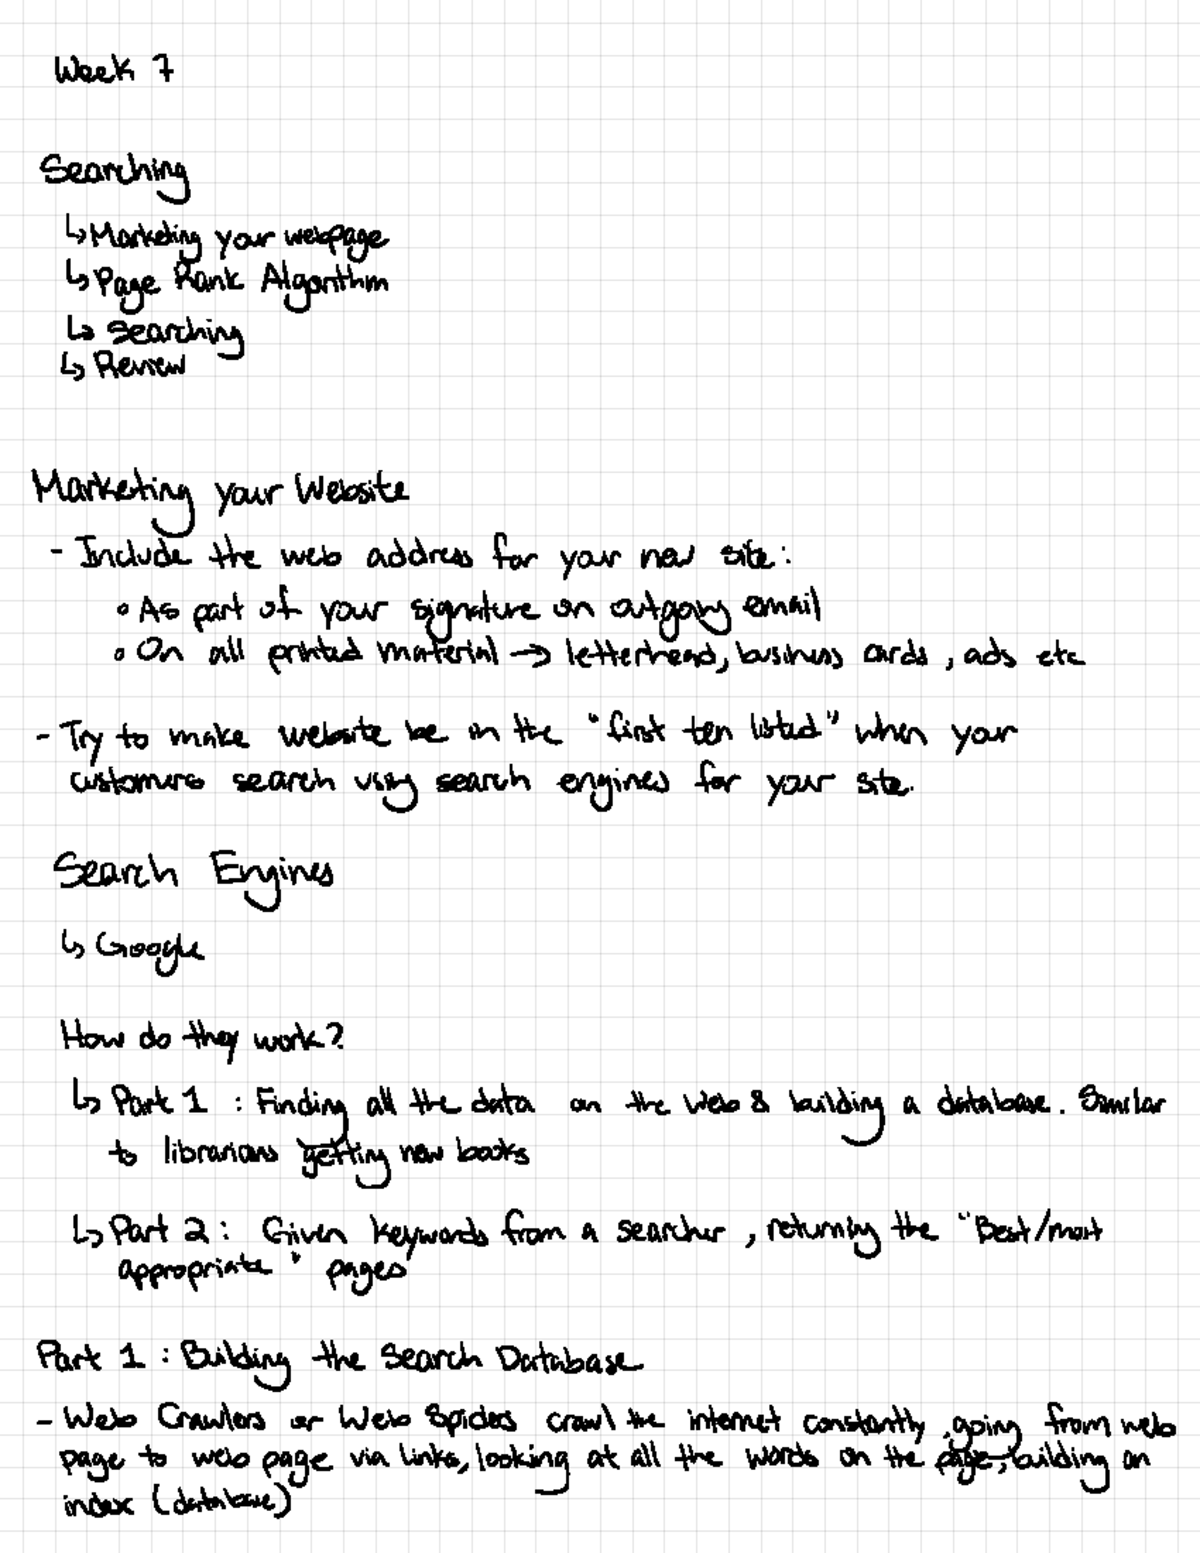 Week 7
Searching
↳ Marketing your webpage
↳ Page Rank Algorithm
↳ Searching
↳ Review
Marketing your Website
- Include the web address for your new site:
• As part of your signature on outgoing email
• On all printed material → letterhead, business cards, ads etc
- Try to make website be in the "first ten listed" when your
customers search using search engines for your site.
Search Engines
↳ Google
How do they work?
↳ Part 1 : Finding all the data on the Web & building a database. Similar
to librarians getting new books
↳ Part 2 : Given keywords from a searcher, returning the "Best/most
appropriate" pages
Part 1 : Building the Search Database
- Web Crawlers or Web Spiders crawl the internet constantly, going from web
page to web page via links, looking at all the words on the page, building an
index (database)